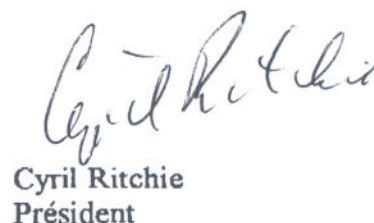 Cyril Ritchie
Cyril Ritchie
Président